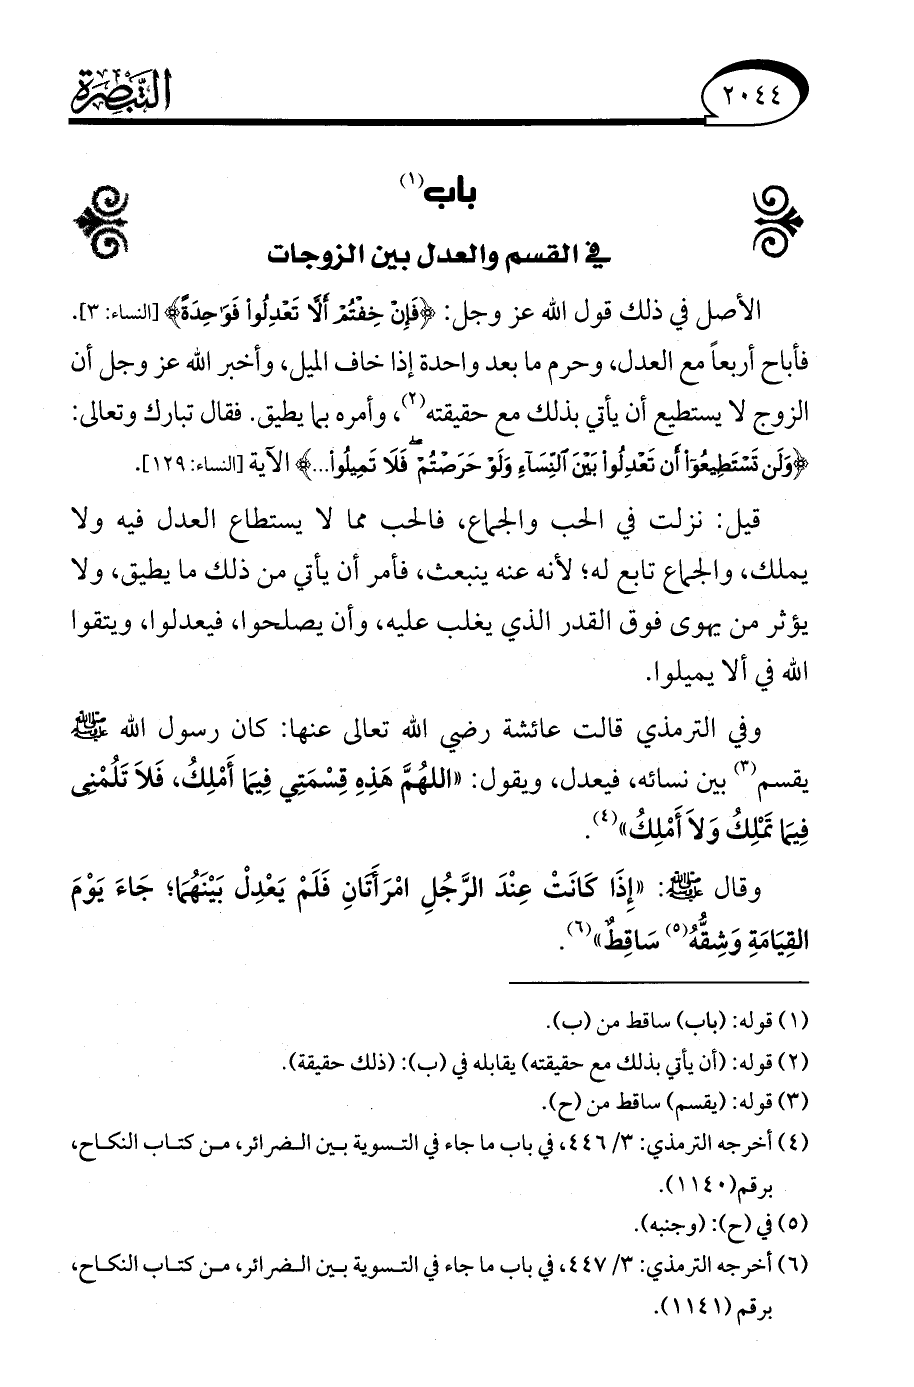 ٢٠٤٤
التبصرة
باب(١)
في القسم والعدل بين الزوجات
الأصل في ذلك قول الله عز وجل: ﴿فَإِنْ خِفْتُمْ أَلَّا تَعْدِلُواْ فَوَٰحِدَةً﴾ [النساء: ٣].
فأباح أربعاً مع العدل، وحرم ما بعد واحدة إذا خاف الميل، وأخبر الله عز وجل أن
الزوج لا يستطيع أن يأتي بذلك مع حقيقته(٢)، وأمره بما يطيق. فقال تبارك وتعالى:
﴿وَلَن تَسْتَطِيعُوٓاْ أَن تَعْدِلُواْ بَيْنَ ٱلنِّسَآءِ وَلَوْ حَرَصْتُمْ ۖ فَلَا تَمِيلُواْ...﴾ الآية [النساء: ١٢٩].
قيل: نزلت في الحب والجماع، فالحب مما لا يستطاع العدل فيه ولا
يملك، والجماع تابع له؛ لأنه عنه ينبعث، فأمر أن يأتي من ذلك ما يطيق، ولا
يؤثر من يهوى فوق القدر الذي يغلب عليه، وأن يصلحوا، فيعدلوا، ويتقوا
الله في ألا يميلوا.
وفي الترمذي قالت عائشة رضي الله تعالى عنها: كان رسول الله ﷺ
يقسم(٣) بين نسائه، فيعدل، ويقول: «اللهُمَّ هَذِهِ قِسْمَتِي فِيمَا أَمْلِكُ، فَلاَ تَلُمْنِى
فِيمَا تَمْلِكُ وَلاَ أَمْلِكُ»(٤).
وقال ﷺ: «إِذَا كَانَتْ عِنْدَ الرَّجُلِ امْرَأَتَانِ فَلَمْ يَعْدِلْ بَيْنَهُمَا؛ جَاءَ يَوْمَ
القِيَامَةِ وَشِقُّهُ(٥) سَاقِطٌ»(٦).
(١) قوله: (باب) ساقط من (ب).
(٢) قوله: (أن يأتي بذلك مع حقيقته) يقابله في (ب): (ذلك حقيقة).
(٣) قوله: (يقسم) ساقط من (ح).
(٤) أخرجه الترمذي: ٣/ ٤٤٦، في باب ما جاء في التسوية بين الضرائر، من كتاب النكاح،
برقم(١١٤٠).
(٥) في (ح): (وجنبه).
(٦) أخرجه الترمذي: ٣/ ٤٤٧، في باب ما جاء في التسوية بين الضرائر، من كتاب النكاح،
برقم (١١٤١).